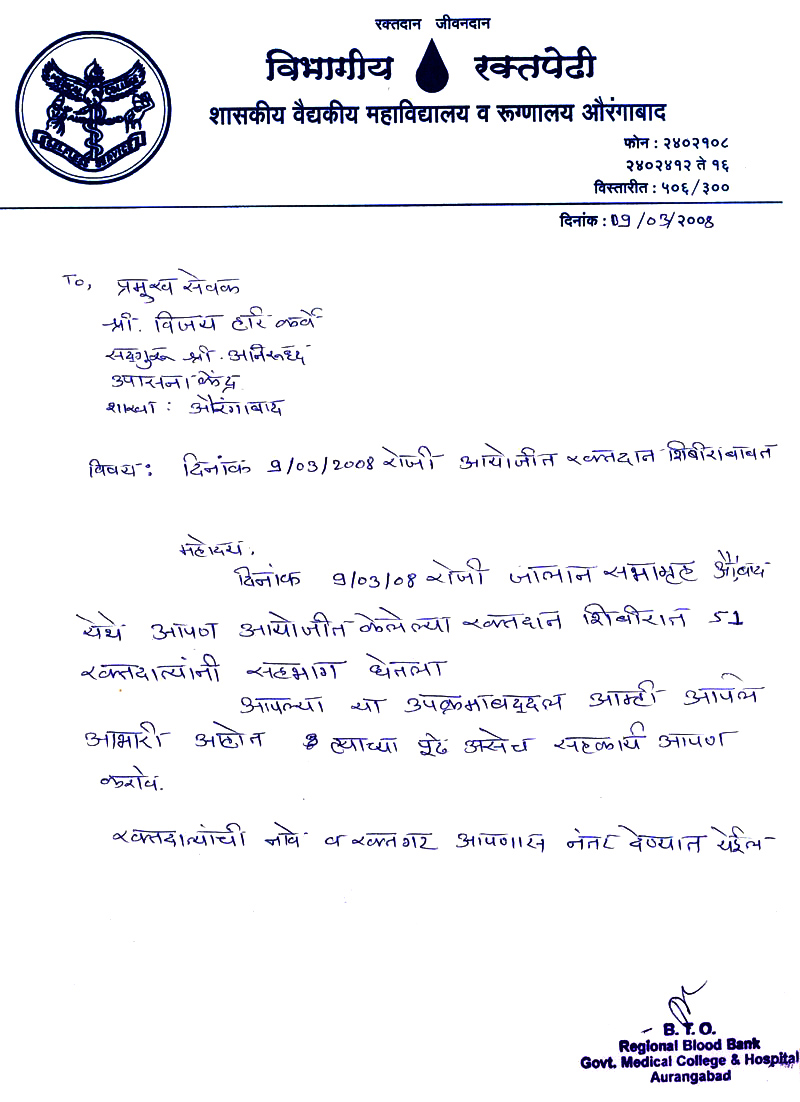 रक्तदान जीवनदान
विभागीय रक्तपेढी
शासकीय वैद्यकीय महाविद्यालय व रूग्णालय औरंगाबाद
फोन : २४०२१०८
२४०२४१२ ते १६
विस्तारीत : ५०६/३००
दिनांक : 09/03/२००8
To, प्रमुख सेवक
श्री. विजय हरि कर्वे
सद्गुरू श्री. अनिरूध्द
उपासना केंद्र
शाखा : औरंगाबाद
विषय : दिनांक 9/03/2008 रोजी आयोजीत रक्तदान शिबीरांबाबत
महोदय,
दिनांक 9/03/08 रोजी जालान सभागृह औ।बाद
येथे आपण आयोजीत केलेल्या रक्तदान शिबीरात 51
रक्तदात्यांनी सहभाग घेतला
आपल्या या उपक्रमाबद्दल आम्ही आपले
आभारी आहोत ह्याच्या पुढे असेच सहकार्य आपण
करावे.
रक्तदात्यांची नावे व रक्तगट आपणास नंतर देण्यात येईल
B.T.O.
Regional Blood Bank
Govt. Medical College & Hospital
Aurangabad